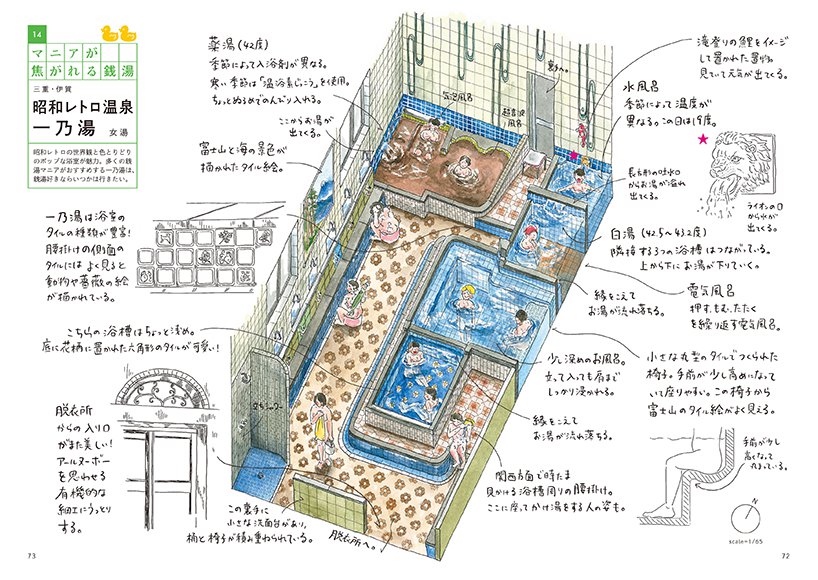 14
マニアが
焦がれる銭湯
三重・伊賀
昭和レトロ温泉
一乃湯 女湯
昭和レトロの世界観と色とりどり
のポップな浴室が魅力。多くの銭
湯マニアがおすすめする一乃湯は、
銭湯好きならいつかは行きたい。
薬湯(42度)
季節によって入浴剤が異なる。
寒い季節は「温浴素じっこう」を使用。
ちょっとぬるめでのんびり入れる。
ここからお湯が
出てくる。
富士山と海の景色が
描かれたタイル絵。
気泡風呂
超音波
風呂
裏へ。
滝登りの鯉をイメージ
して置かれた置物。
見ていて元気が出てくる。
水風呂
季節によって温度が
異なる。この日は19度。
★
長方形の吐水口
からお湯が溢れ
出てくる。
ライオンの口
から水が
出てくる。
白湯(42.5~43.2度)
隣接する3つの浴槽はつながっている。
上から下にお湯が下りていく。
縁をこえて
お湯が流れ落ちる。
電気風呂
押す、もむ、たたく
を繰り返す電気風呂。
一乃湯は浴室の
タイルの種類が豊富!
腰掛けの側面の
タイルにはよく見ると
動物や薔薇の絵
が描かれている。
こちらの浴槽はちょっと浅め。
底に花柄に置かれた六角形のタイルが可愛い!
少し深めのお風呂。
立って入っても肩まで
しっかり浸かれる。
縁をこえて
お湯が流れ落ちる。
小さな丸型のタイルでつくられた
椅子。手前が少し高めになって
いて座りやすい。この椅子から
富士山のタイル絵がよく見える。
手前が少し
高くなって
丸まっている。
脱衣所
からの入り口
がまた美しい!
アールヌーボー
を思わせる
有機的な
細工にうっとり
する。
立ちシャワー
この裏手に
小さな洗面台があり、
桶と椅子が積み重ねられている。
脱衣所へ。
関西方面で時たま
見かける浴槽周りの腰掛け。
ここに座ってかけ湯をする人の姿も。
N
scale=1/65
73
72